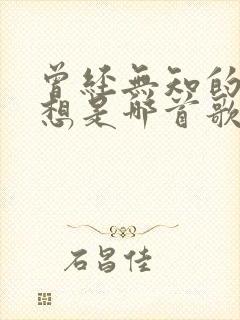 曾经无知的
想是那首歌
石昌佳